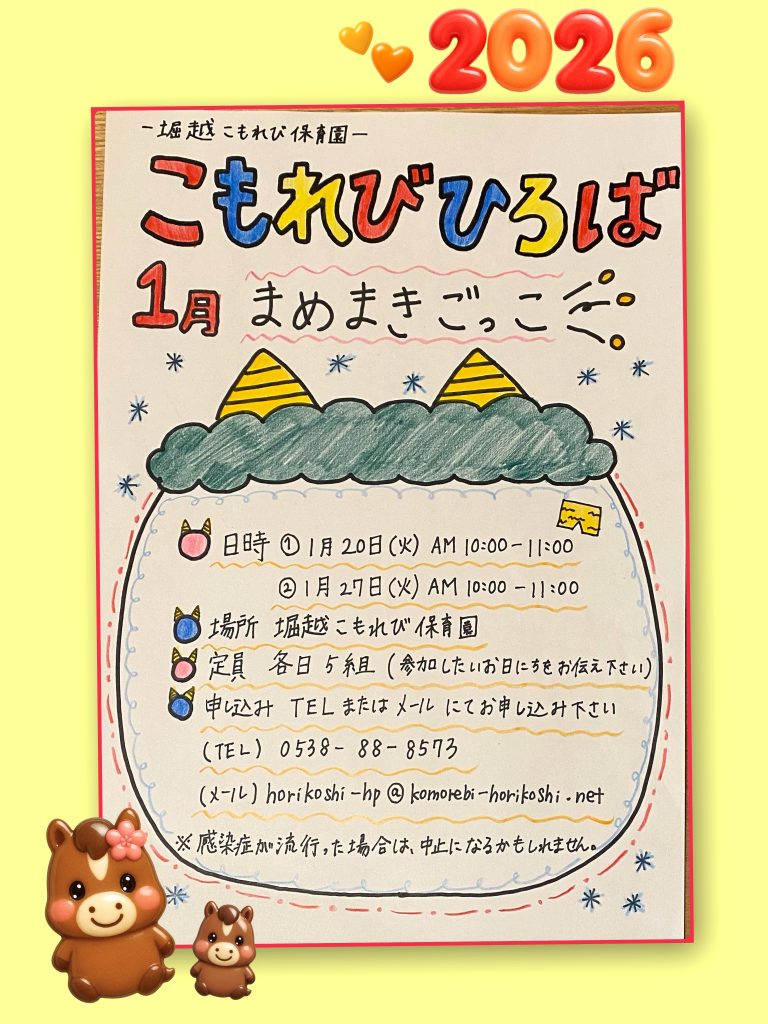 2026
ー堀越こもれび保育園ー
こもれびひろば
1月 まめまきごっこ
日時 ① 1月20日(火) AM 10:00-11:00
② 1月27日(火) AM 10:00-11:00
場所 堀越こもれび保育園
定員 各日5組 (参加したいお日にちをお伝え下さい)
申し込み TELまたはメールにてお申し込み下さい
(TEL) 0538-88-8573
(メール) horikoshi-hp@komorebi-horikoshi.net
※感染症が流行った場合は、中止になるかもしれません。